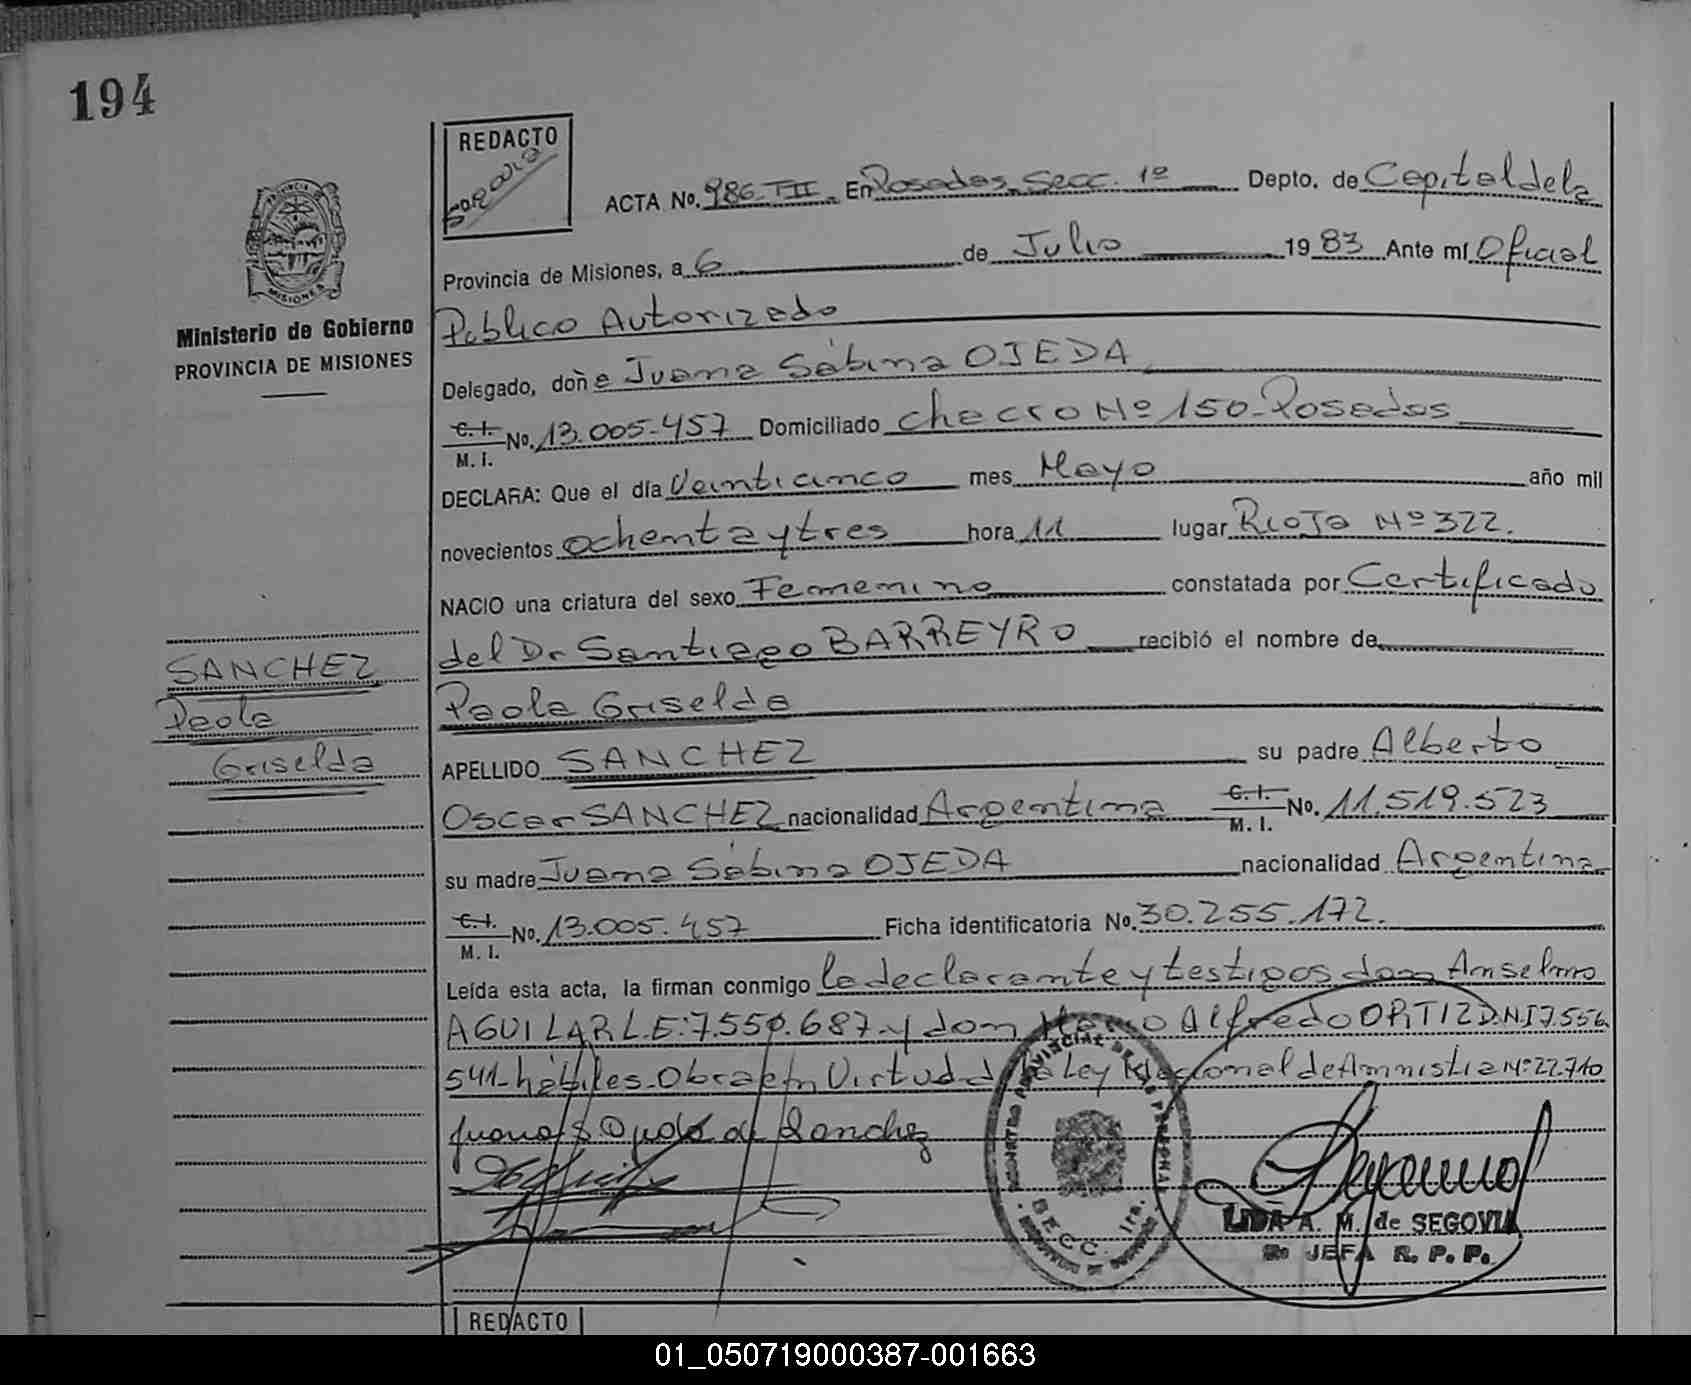 194
REDACTO
ACTA No. 986-TII. En Posadas, Secc. 1ª Depto. de Capital de la
Provincia de Misiones, a 6 de Julio 1983 Ante mí Oficial
Público Autorizado
Ministerio de Gobierno
PROVINCIA DE MISIONES
Delegado, doña Juana Sabina OJEDA
C. I. No. 13.005.457 Domiciliado Chacra Nº 150-Posadas
M. I.
DECLARA: Que el día Veinticinco mes Mayo año mil
novecientos Ochenta y tres hora 11 lugar Rioja Nº 322.
NACIO una criatura del sexo Femenino constatada por Certificado
del Dr Santiago BARREYRO recibió el nombre de
SANCHEZ
Paola
Griselda
Paola Griselda
APELLIDO SANCHEZ su padre Alberto
Oscar SANCHEZ nacionalidad Argentina C. I. No. 11.519.523
M. I.
su madre Juana Sabina OJEDA nacionalidad Argentina
C. I. No. 13.005.457 Ficha identificatoria No. 30.255.172.
M. I.
Leída esta acta, la firman conmigo la declarante y testigos don Anselmo
AGUILAR L.E: 7.550.687 y don Alfredo ORTIZ D.N.I 7.556
541-hábiles-Obra en Virtud de la Ley Nacional de Amnistia Nº 22.710
Juana S Ojeda de Sanchez
REGISTRO PROVINCIAL DE LAS PERSONAS
SECC. 1ra.
LIDA A. M. de SEGOVIA
JEFA R. P. P.
REDACTO
01_050719000387-001663